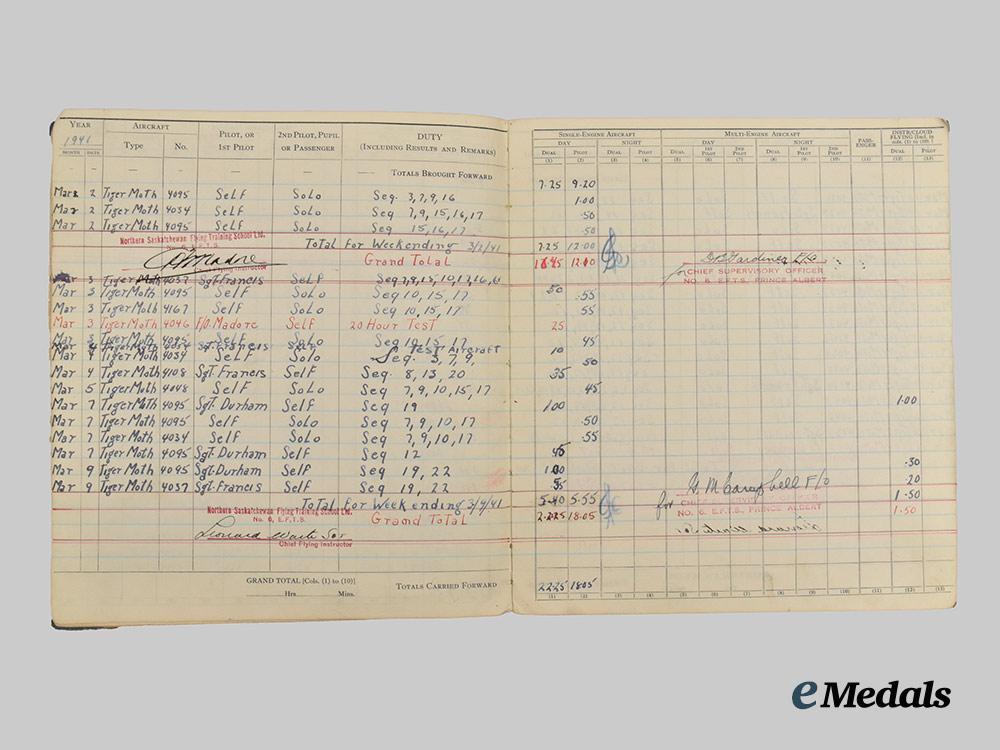 YEAR AIRCRAFT PILOT, OR 1ST PILOT 2ND PILOT, PUPIL OR PASSENGER DUTY (INCLUDING RESULTS AND REMARKS)
1941
MONTH DATE Type No.
— — — — — — TOTALS BROUGHT FORWARD
Mar 2 Tiger Moth 4095 Self Solo Seq. 3,7,9,16
Mar 2 Tiger Moth 4034 Self Solo Seq 7,9,15,16,17
Mar 2 Tiger Moth 4095 Self Solo Seq 15,16,17
Northern Saskatchewan Flying Training School Ltd. Total for Weekending 3/2/41
Grand Total
Mar 3 Tiger Moth 4037 Sgt. Francis Self Seq
Mar 3 Tiger Moth 4095 Self Solo Seq 10,15,17
Mar 3 Tiger Moth 4167 Self Solo Seq 10,15,17
Mar 3 Tiger Moth 4046 F/O. Madore Self 20 Hour Test
Mar 3 Tiger Moth 4095 Self Solo Seq 10,15,17
Test Aircraft
Mar 4 Tiger Moth 4034 Self Solo Seq. 3,7,9,
Mar 4 Tiger Moth 4108 Sgt. Francis Self Seq. 8,13,20
Mar 5 Tiger Moth 4048 Self Solo Seq 7,9,10,15,17
Mar 7 Tiger Moth 4095 Sgt. Durham Self Seq 19
Mar 7 Tiger Moth 4095 Self Solo Seq 7,9,10,17
Mar 7 Tiger Moth 4034 Self Solo Seq 7,9,10,17
Mar 7 Tiger Moth 4095 Sgt. Durham Self Seq 12
Mar 9 Tiger Moth 4095 Sgt. Durham Self Seq 19,22
Mar 9 Tiger Moth 4037 Sgt. Francis Self Seq 19,22
Northern Saskatchewan Flying Training School Ltd. Total for Weekending 3/9/41
No. 6, E.F.T.S. Grand Total
Chief Flying Instructor
GRAND TOTAL [Cols. (1) to (10)] TOTALS CARRIED FORWARD
Hrs. Mins.
SINGLE-ENGINE AIRCRAFT MULTI-ENGINE AIRCRAFT PASSENGER INSTR/CLOUD FLYING [Incl. in cols. (1) to (10).]
DAY NIGHT DAY NIGHT
DUAL PILOT DUAL PILOT DUAL 1ST PILOT 2ND PILOT DUAL 1ST PILOT 2ND PILOT DUAL PILOT
(1) (2) (3) (4) (5) (6) (7) (8) (9) (10) (11) (12) (13)
7.25 9.20
1.00
.50
.50
7.25 12.00
D.B. Gardiner F/O
for CHIEF SUPERVISORY OFFICER
NO. 6, E.F.T.S. PRINCE ALBERT
50
.55
55
25
45
10
50
35
45
1.00 1.00
.50
.55
45
1.00 .30
35 .20
5.40 5.55 G. M Campbell F/O 1.50
for NO. 6, E.F.T.S. PRINCE ALBERT 18.05 1.50
22.25 18.05
(1) (2) (3) (4) (5) (6) (7) (8) (9) (10) (11) (12) (13)
eMedals